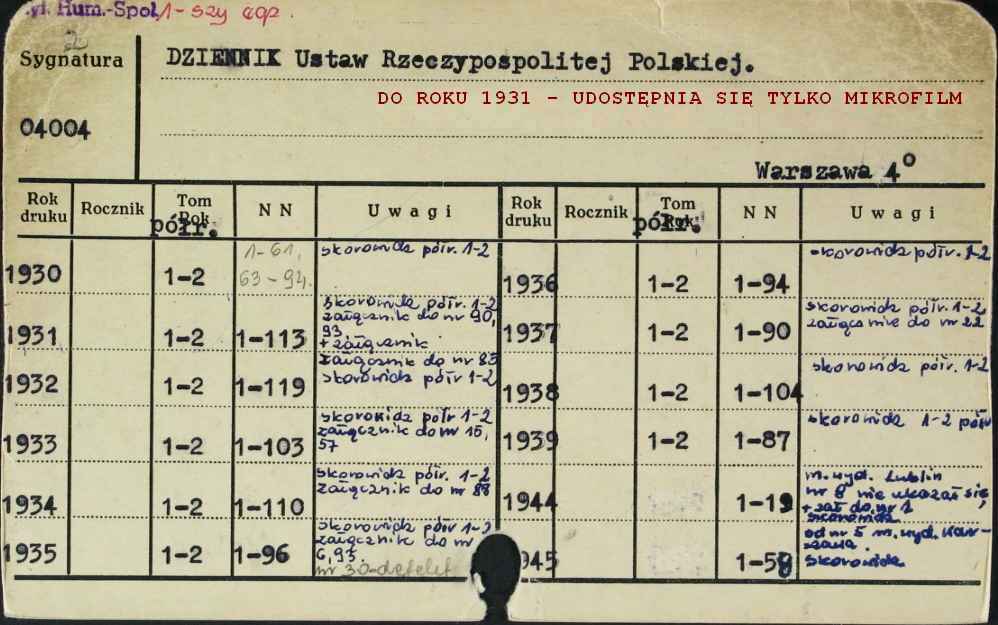 Hum.-Społ. 1-szy egz.
2
Sygnatura
DZIENNIK Ustaw Rzeczypospolitej Polskiej.
DO ROKU 1931 - UDOSTĘPNIA SIĘ TYLKO MIKROFILM
04004
Warszawa 4°
Rok druku Rocznik Tom Rok półr. N N Uwagi Rok druku Rocznik Tom Rok półr. N N Uwagi
1930 1-2 1-61, 63-94. skorowidz półr. 1-2
1931 1-2 1-113 skorowidz półr. 1-2
załącznik do nr 90,
93
+ załącznik
1932 1-2 1-119 załącznik do nr 85
skorowidz półr 1-2
1933 1-2 1-103 skorowidz półr 1-2
załącznik do nr 15,
57
1934 1-2 1-110 skorowidz półr. 1-2
załącznik do nr 88
1935 1-2 1-96 skorowidz półr 1-2
załącznik do nr
6, 93.
nr 30
1936 1-2 1-94 skorowidz półr. 1-2
1937 1-2 1-90 skorowidz półr. 1-2,
załącznik do nr 22
1938 1-2 1-104 skorowidz półr. 1-2
1939 1-2 1-87 skorowidz 1-2 półr
1944 1-19 m. wyd. Lublin
nr 8 nie ukazał się,
+ zał do nr 1
skorowidz
1945 1-59 od nr 5 m. wyd. War-
szawa.
skorowidz